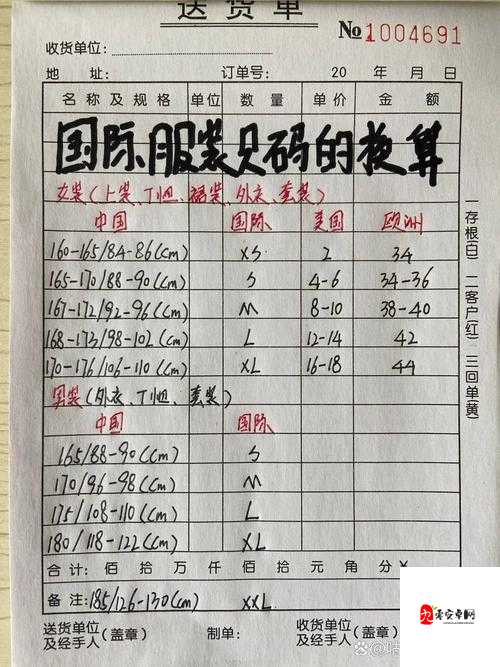 送货单
№1004691
收货单位:
地 址: 订单号: 20 年 月 日
名称及规格 单位 数量 单价 金额
国际服装尺码的换算
女装(上装、T恤、裙装、外衣、套装)
中国 国际 美国 欧洲
160-165/84-86(cm) XS 2 34
165-170/88-90(cm) S 4-6 34-36
167-172/92-96(cm) M 8-10 38-40
168-173/98-102(cm) L 12-14 42
170-176/106-110(cm) XL 16-18 44
男装(外衣、T恤、套装)
中国 国际
165/88-90(cm) S
170/96-98(cm) M
175/108-110(cm) L
180/118-122(cm) XL
合计: 佰 拾 万 仟 佰 拾 元 角 分 ¥
备注: 185/126-130(cm) XXL
送货单位及经手人(盖章) 制单: 收货单位及经手人(盖章)
一存根(白) 二客户(红) 三回单(黄)